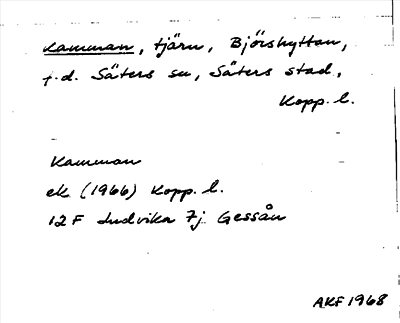 Kamman, tjärn, Björshyttan,
f.d. Säters sn, Säters stad,
Kopp. l.
Kamman
ek (1966) Kopp. l.
12 F Ludvika 7j Gessån
AKF 1968